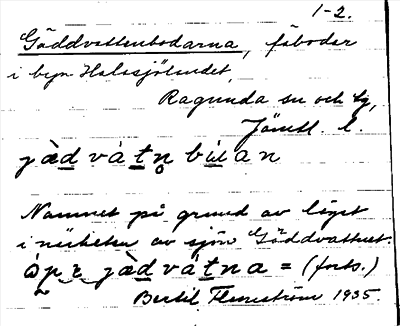 1-2.
Gäddvattenbodarna, fäbodar
i byn Halasjölandet,
Ragunda sn och tg,
Jämtl. l.
jàdvátn̥ bùan
Namnet på grund av läget
i närheten av sjön Gäddvattnet.
jàdvátna = (forts.)
Bertil Flemström 1935.